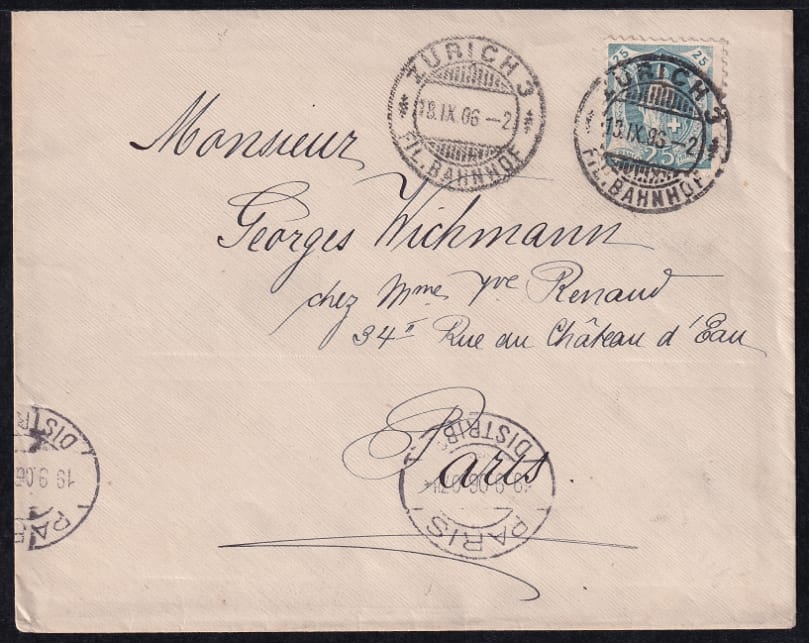 ZÜRICH 3
18.IX.06 - 2
FIL. BAHNHOF
25 25
ZÜRICH 3
18.IX.06 - 2
FIL. BAHNHOF
25
Monsieur
Georges Wichmann
chez Mme Vve Renaud
34II Rue du Château d'Eau
Paris
DISTRIB
PARIS
DISTR
19 9.06
PA